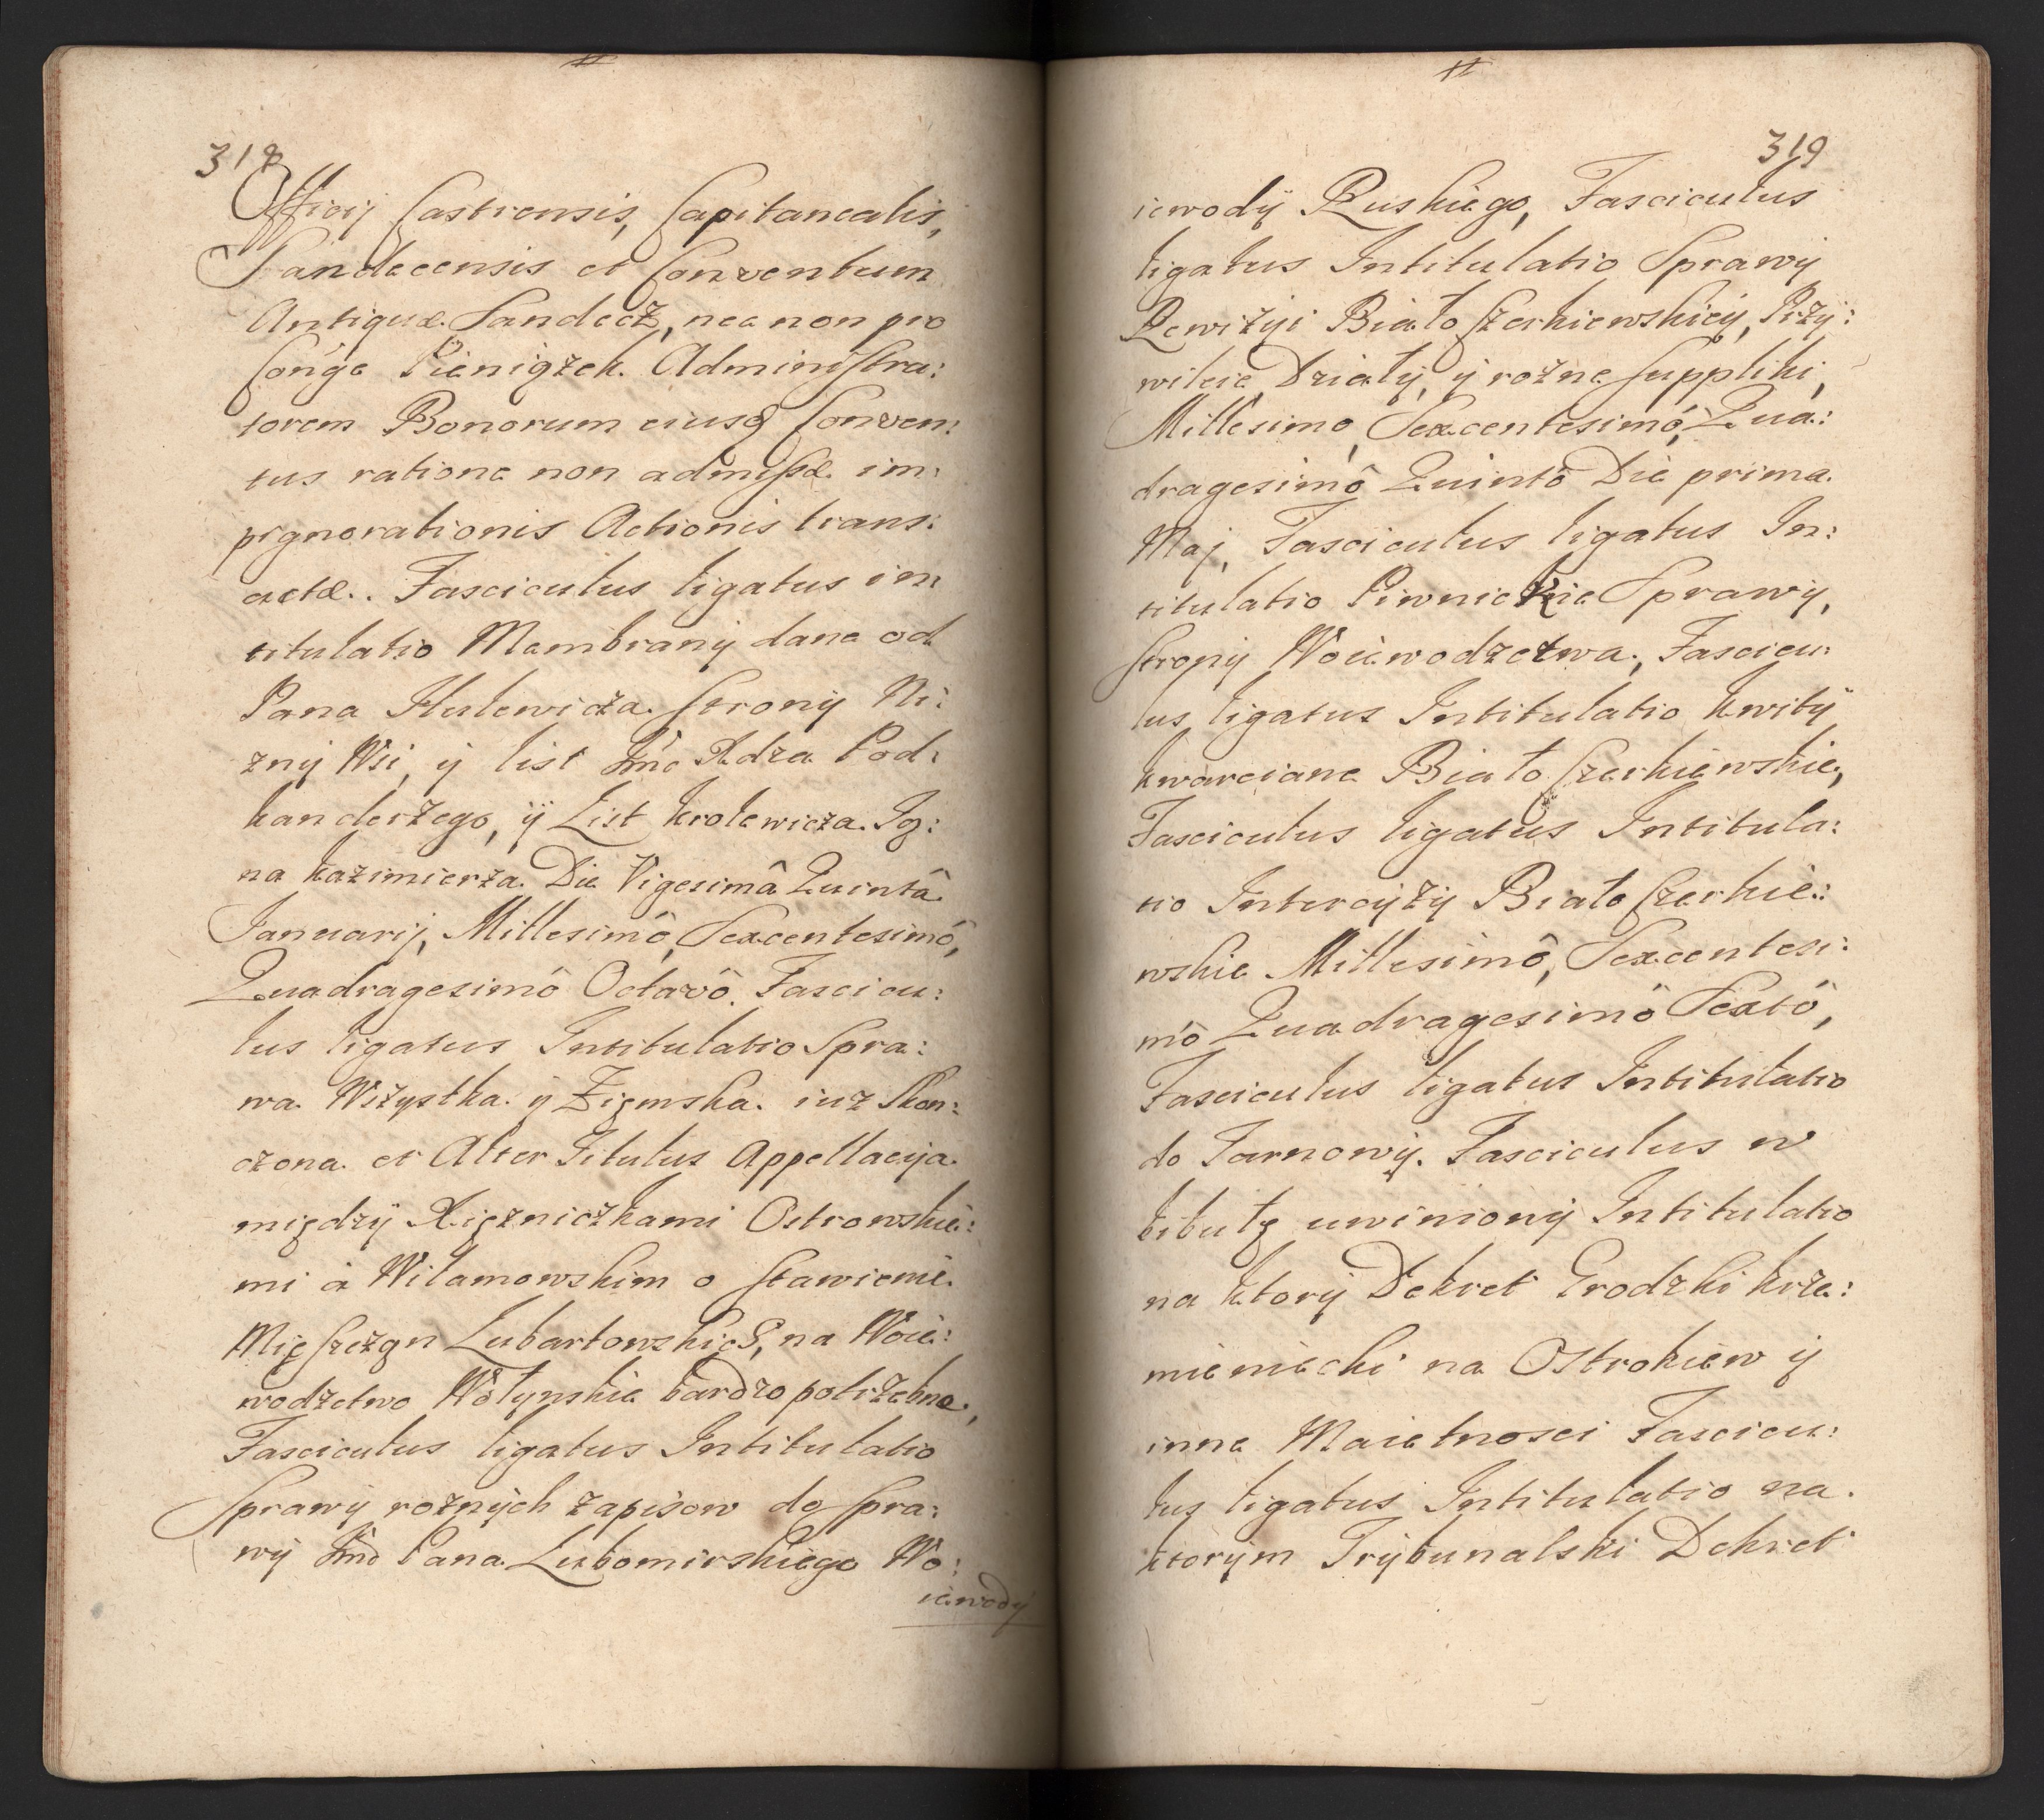 318
Officij Castrensis, Capitanealis,
Sandecensis et Conventum
Antiquæ Sandecž, nec non pro
Congæ Pieniążek Administra:
torem Bonorum eiusq Conven:
tus ratione non admissæ im:
pignorationis Actionis trans:
actæ. Fasciculus ligatus in
titulatio Membrany dane od
Pana Hulewicza strony Ni:
zny Wsi, ÿ list Jmć Xdza Pod:
kanderzego, ÿ List krolewicza Ig:
na kazimierza Die Vigesimâ Quintâ
Januarij, Millesimô, Sexcentesimô,
Quadragesimô Octavô. Fascicu:
lus ligatus Intitulatio Spra:
wa Wszystka ÿ Ziemska iuz Skon:
czona et Alter Titulus Appellacya
międzÿ Xięzniczkami Ostrowskie:
mi à Wilamowskim o stawienie
Mięszczan Lubartowskich, na Woie:
wodzctwo Wołynskie bardzo potrzebne,
Fasciculus ligatus Intitulatio
Sprawÿ roznÿch zapisow do spra:
wÿ Jmć Pana Lubomirskiego Wo:
iewodÿ
319
iewodÿ Ruskiego, Fasciculus
ligatus Intitulatio Sprawÿ
Rewizÿi Biało Czerkiewskiey, Przÿ:
wileie, Działÿ, ÿ rozne suppliki,
Millesimo, Sexcentesimô, Qua:
dragesimô Quintô Die prima
Maj, Fasciculus ligatus In:
titulatio Piwnickie Sprawÿ,
stronÿ Woiewodzctwa, Fascicu:
lus ligatus Intitulatio kwitÿ
kwarciane Biało Czerkiewskie,
Fasciculus ligatus Intitula:
tio Intercÿzÿ Biało Czerkie:
wskie Millesimô, Sexcentesi:
mô Quadragesimô Sextô,
Fasciculus ligatus Intitulatio
do Tarnowÿ. Fasciculus w
bibułę uwinionÿ Intitulatio
na ktorÿ Dekret Grodzki krze:
mieniecki na Ostrokiew ÿ
inne Maietnosci Fascicu:
lus ligatus Intitulatio na
ktorÿm Trÿbunalski Dekret